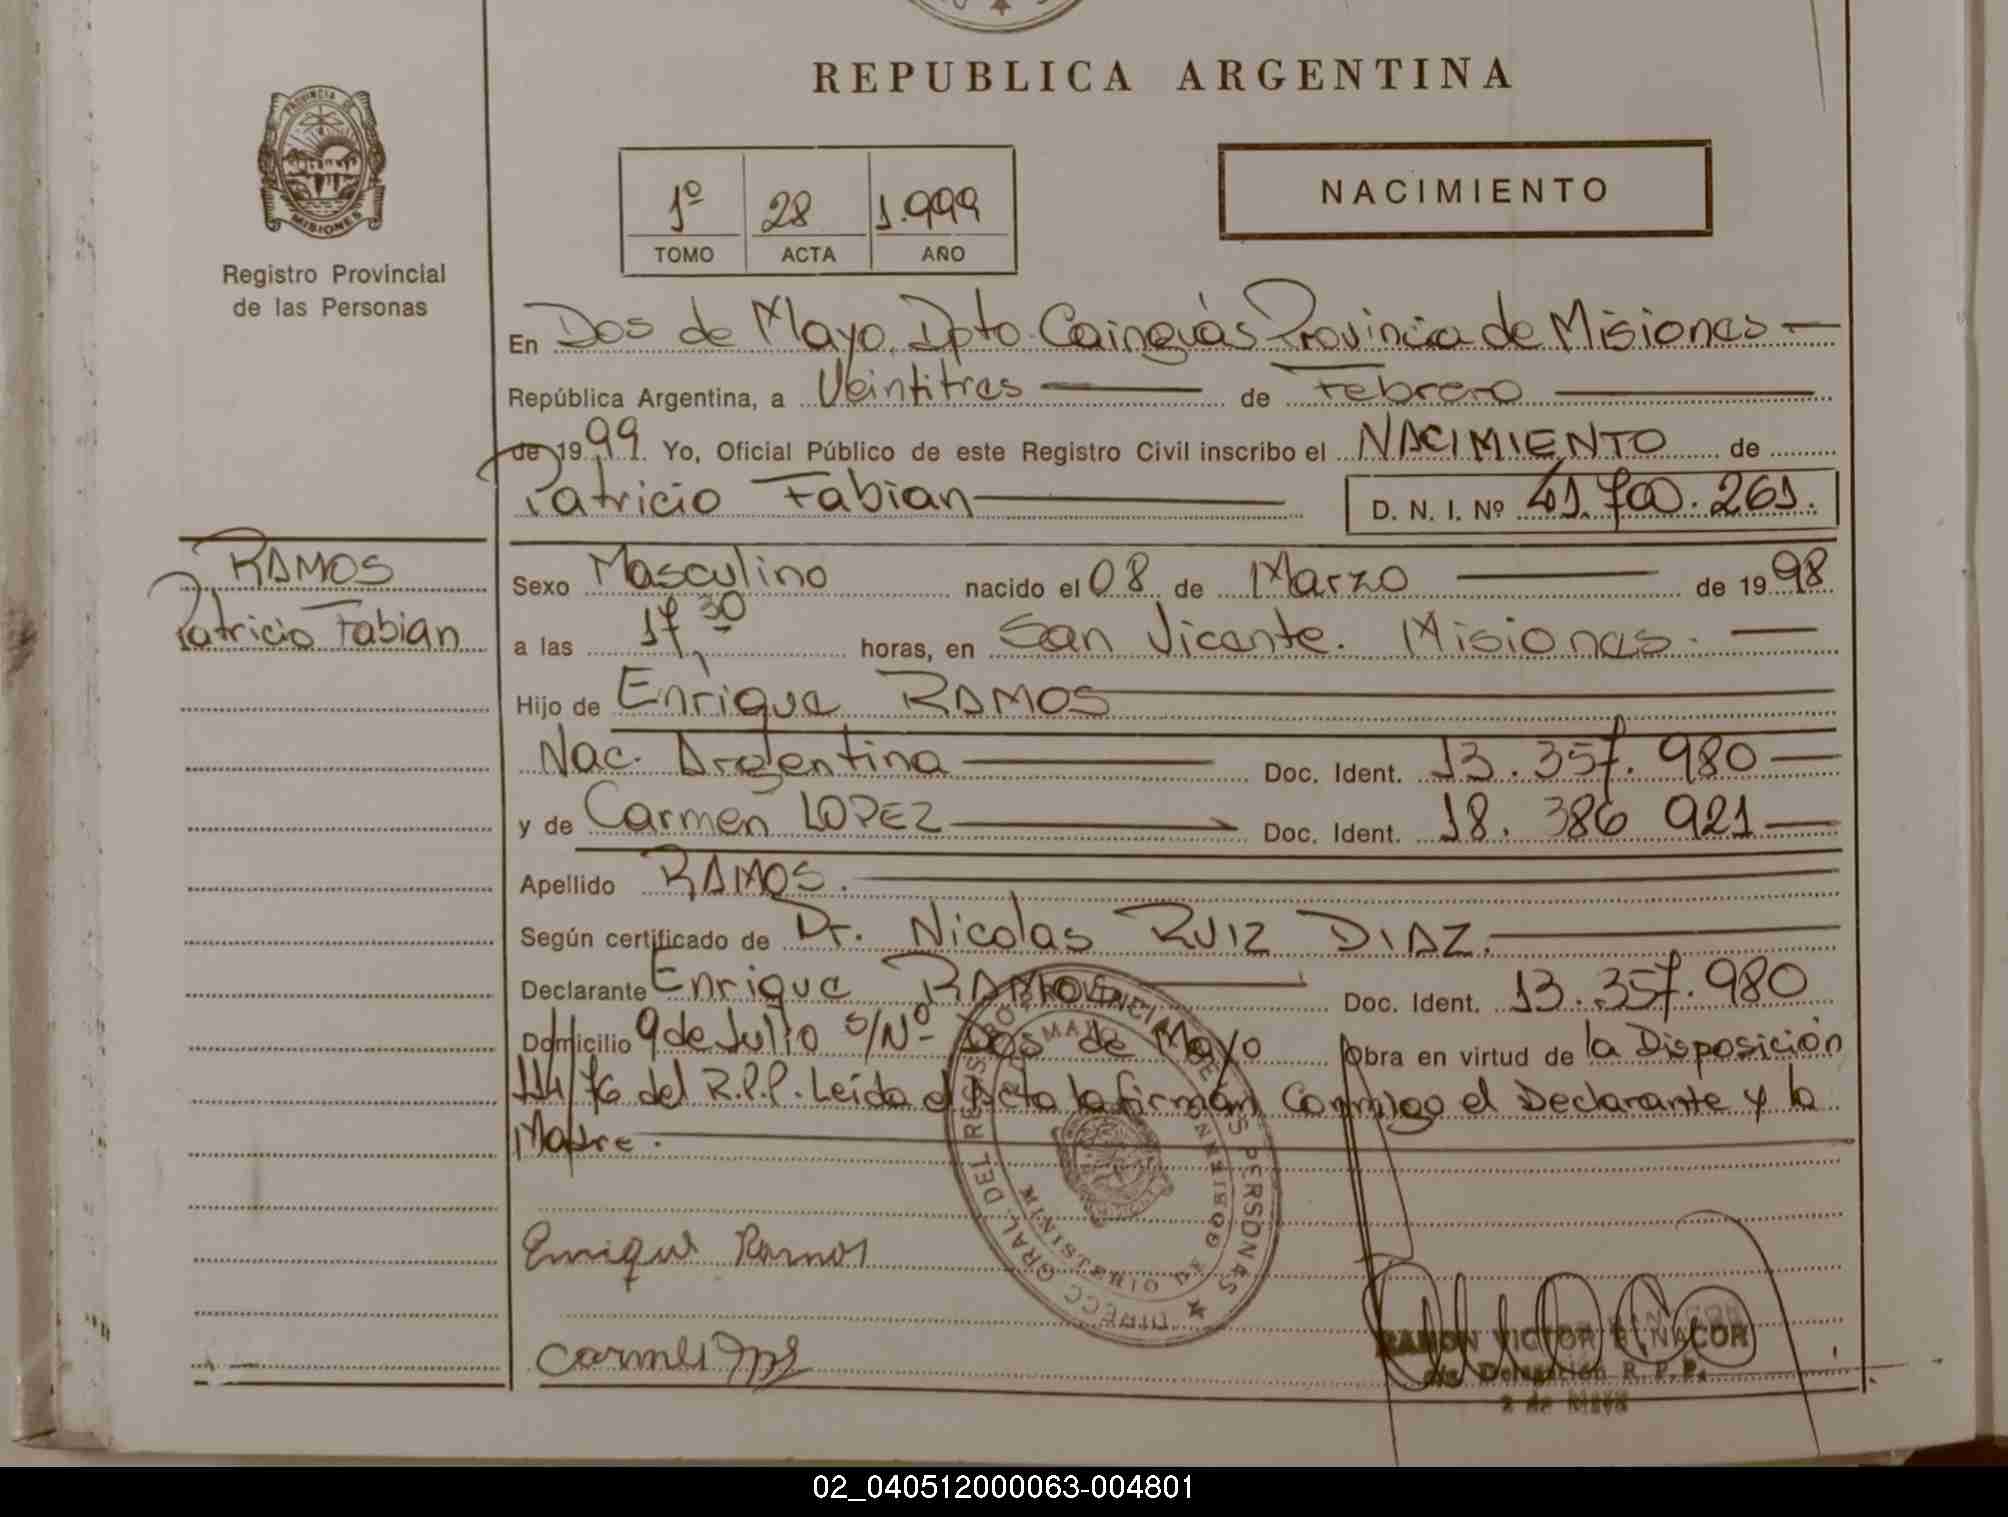 REPUBLICA ARGENTINA
PROVINCIA DE
MISIONES
Registro Provincial
de las Personas
1º 28 1.999
TOMO ACTA AÑO
NACIMIENTO
En Dos de Mayo, Dpto Cainguás Provincia de Misiones
República Argentina, a Veintitres de Febrero
de 1999. Yo, Oficial Público de este Registro Civil inscribo el NACIMIENTO de
Patricio Fabian D. N. I. Nº 41.700.261.
RAMOS
Patricio Fabian
Sexo Masculino nacido el 08 de Marzo de 1998
a las 17,30 horas, en San Vicente. Misiones.
Hijo de Enrique RAMOS
Nac. Argentina Doc. Ident. 13.357.980
y de Carmen LOPEZ Doc. Ident. 18.386 921
Apellido RAMOS.
Según certificado de Dr. Nicolas RUIZ DIAZ.
Declarante Enrique RAMOS Doc. Ident. 13.357.980
Domicilio 9 de Julio s/Nº Dos de Mayo Obra en virtud de la Disposición
114/76 del R.P.P. Leída el Acta la firman Conmigo el Declarante y la
Madre.
DIRECC GRAL DEL REGISTRO PROVINCIAL DE LAS PERSONAS
Enrique Ramos
RAMON VICTOR
Delegación R. P. P.
2 de Mayo
02_040512000063-004801